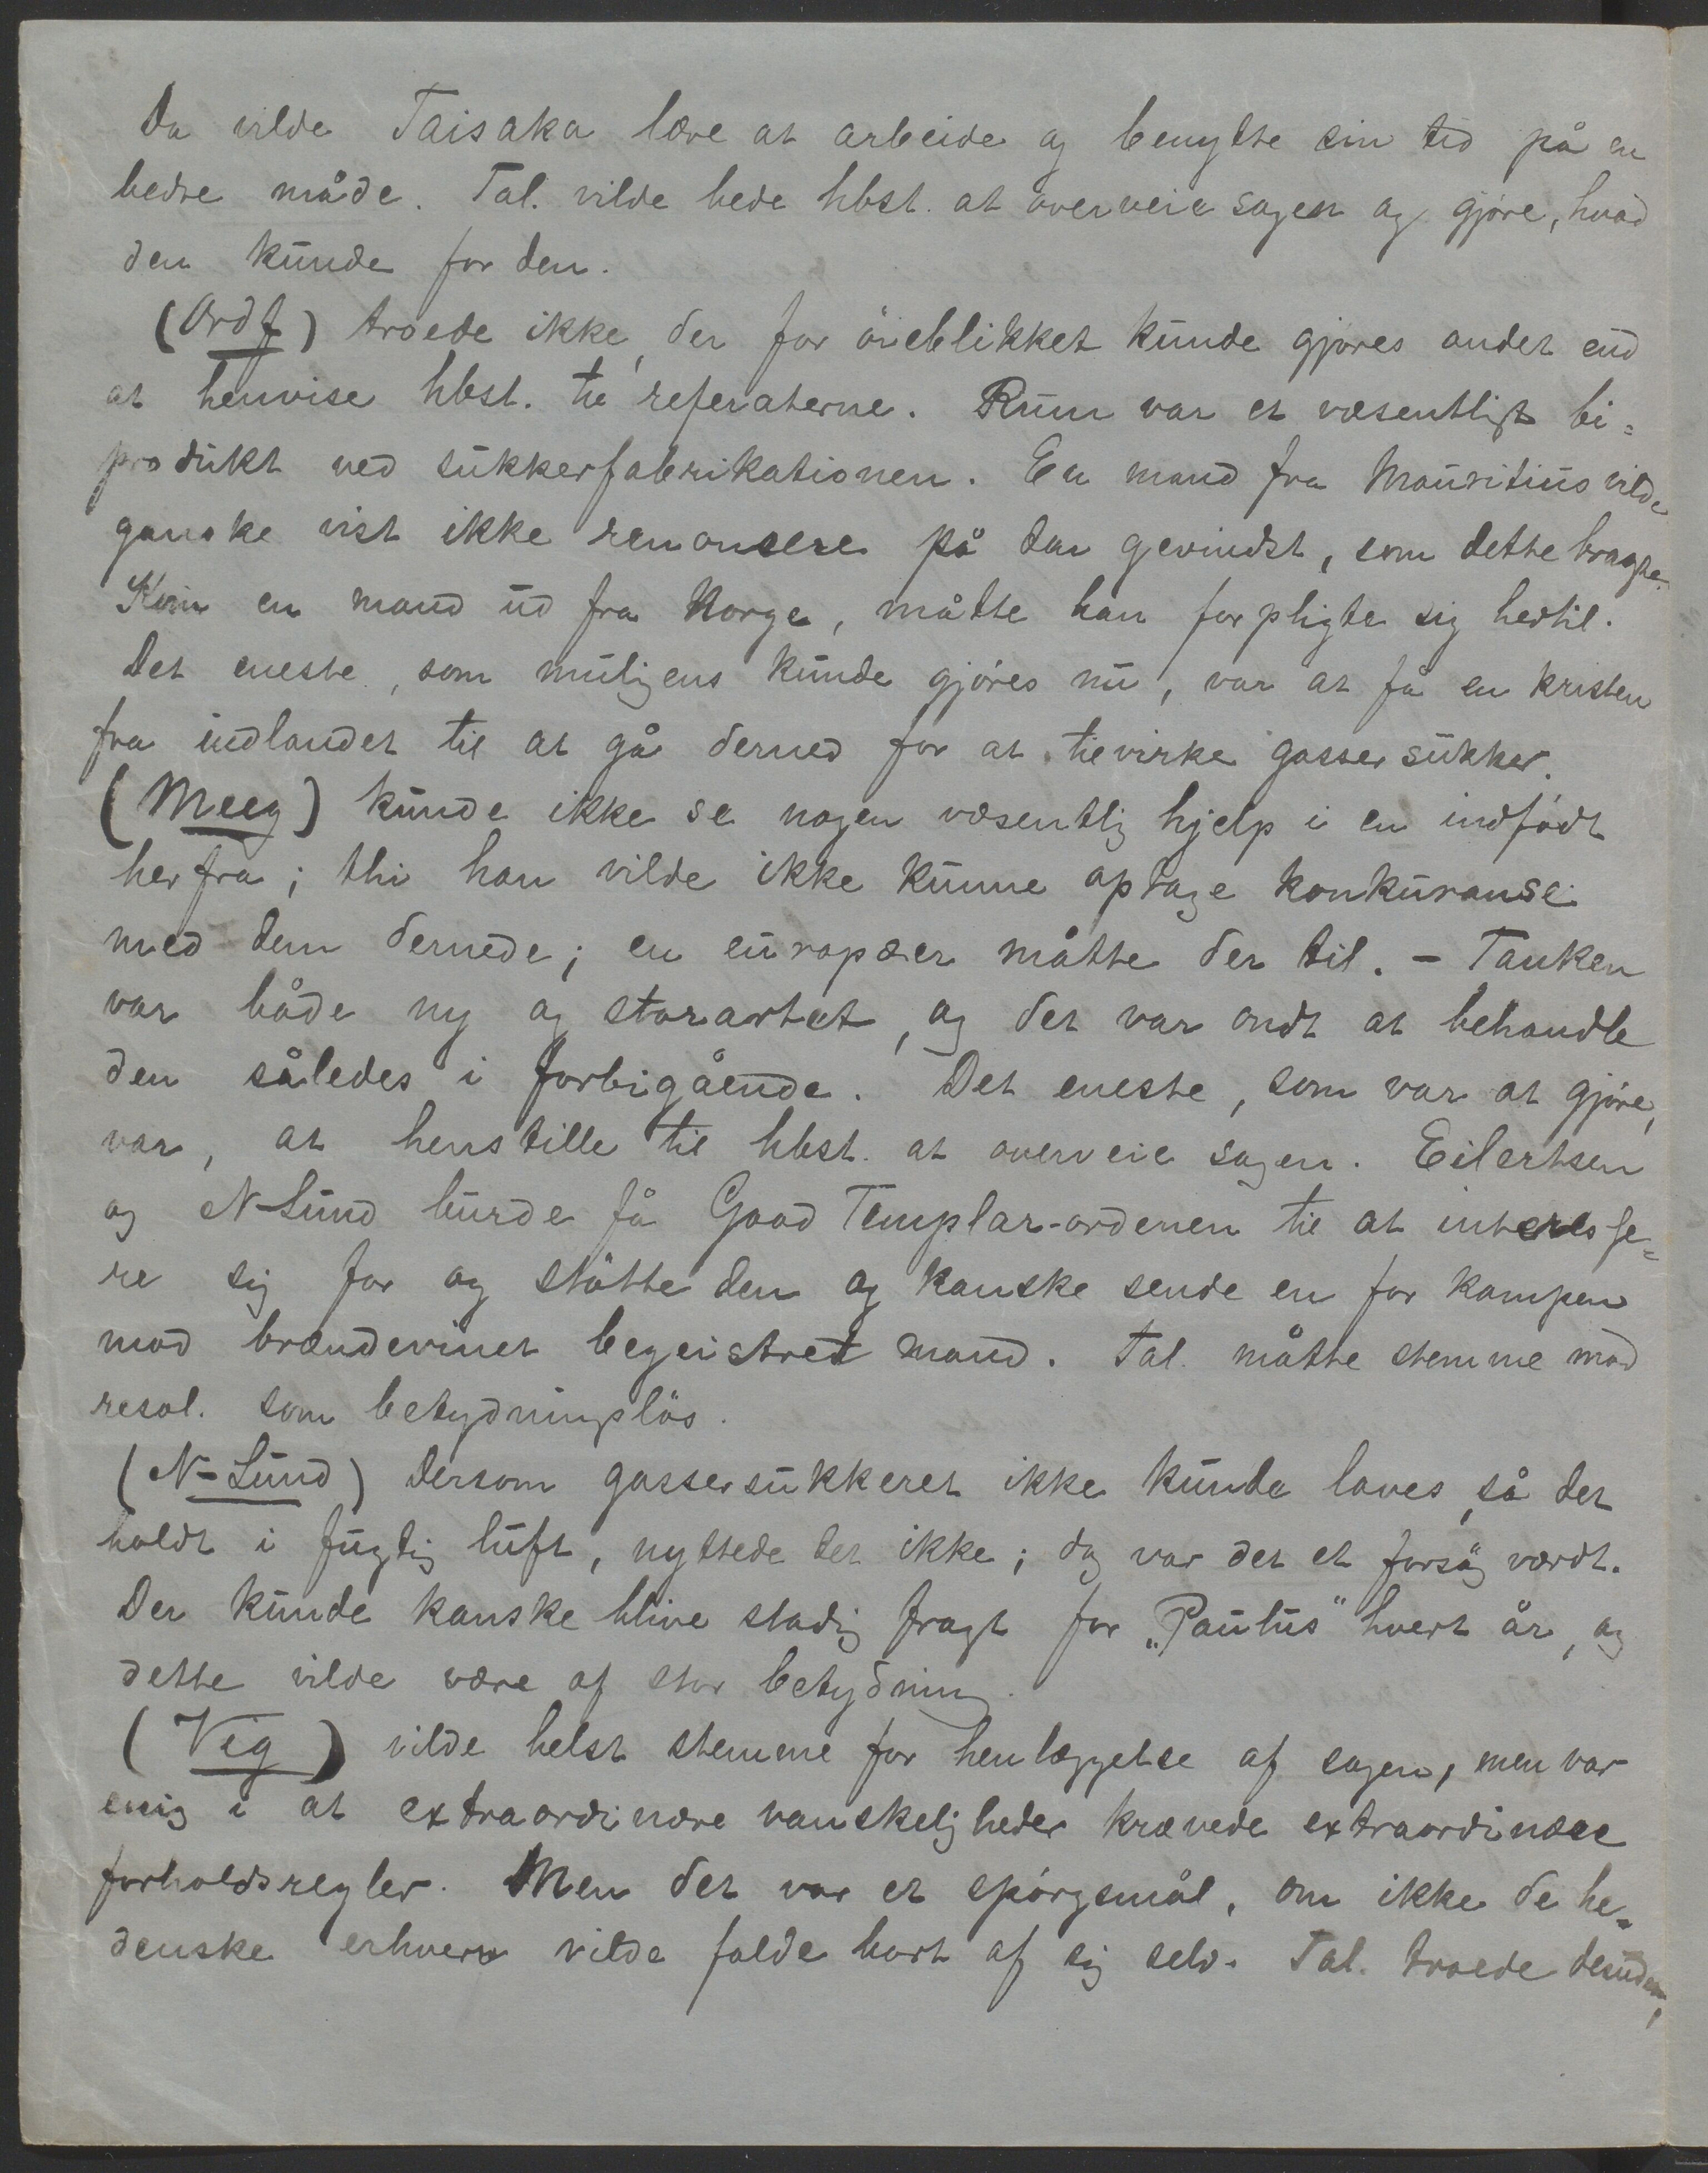 Da vilde Taisaka lære at arbeide og benytte sin tid på en
bedre måde. Tal. vilde bede hbst. at overveie sagen og gjøre, hvad
den kunde for den.
(Ordf) troede ikke, der for öieblikket kunde gjøres andet end
at henvise hbst. til referaterne. Rum var et væsentligt bi=
produkt ved sukkerfabrikationen. En mand fra Mauritius vilde
ganske vist ikke renonsere på den gevindst, som dette bragte.
Kom en mand ud fra Norge, måtte han forpligte sig hertil.
Det eneste, som muligens kunde gjöres nu, var at få en kristen
fra indlandet til at gå derned for at tilvirke gassersukker.
(Meeg) kunde ikke se nogen væsentlig hjelp i en indfödt
herfra; thi han vilde ikke kunne optage konkuranse
med dem dernede; en europæer måtte der til. - Tanken
var både ny og storartet, og det var ondt at behandle
den således i forbigående. Det eneste, som var at gjöre,
var, at henstille til hbst. at overveie sagen. Eilertsen
og N-Lund burde få Good Templar-ordenen til at interesse=
re sig for og stötte den og kanske sende en for kampen
mod brændevinet begeistret mand. Tal. måtte stemme mod
resol. som betydningslös.
(N-Lund) Dersom gassersukkeret ikke kunde laves, så det
holdt i fugtig luft, nyttede det ikke; dog var det et forsög værdt.
Der kunde kanske blive stadig fragt for „Paulus" hvert år, og
dette vilde være af stor betydning.
(Vig) vilde helst stemme for henlæggelse af sagen, men var
enig i at extraordinære vanskeligheder krævede extraordinære
forholdsregler. Men det var et spörgsmål, om ikke de he=
denske erhverv vilde falde bort af sig selv. Tal. troede desuden,